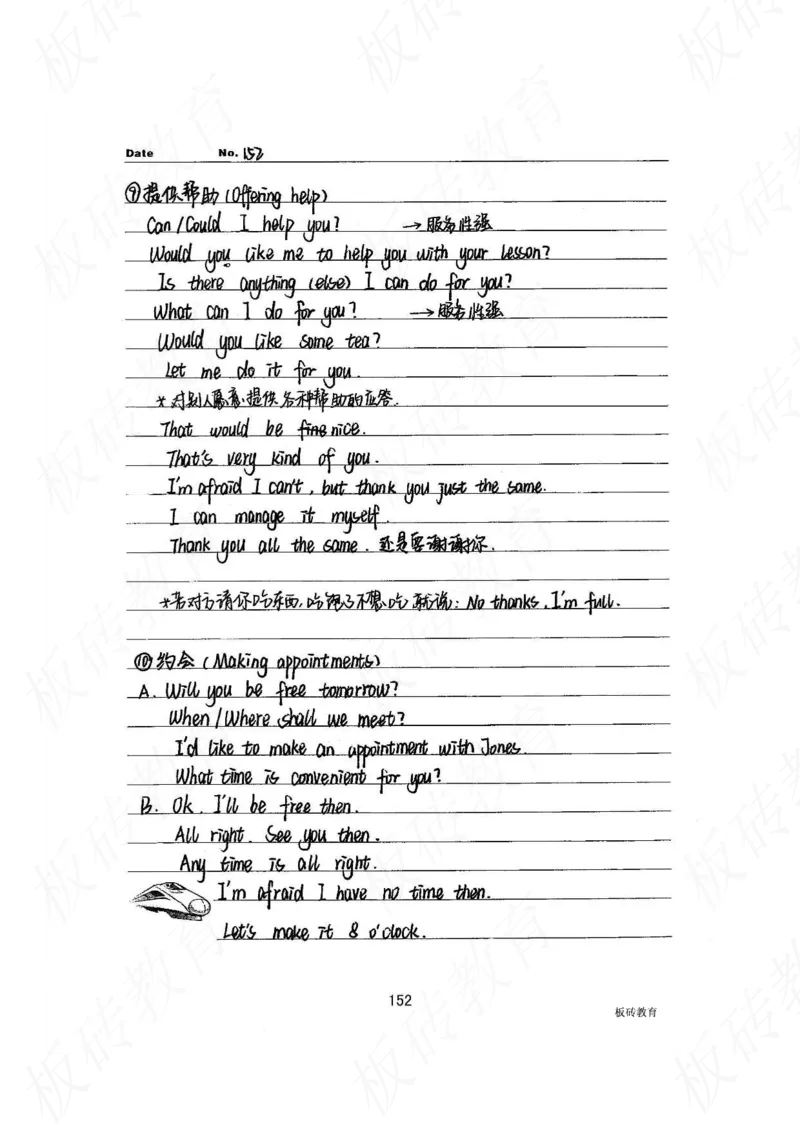 Date No. 152
⑨提供帮助(Offering help)
Can/Could I help you? →服务性强
Would you like me to help you with your lesson?
Is there anything (else) I can do for you?
What can I do for you? →服务性强
Would you like some tea?
Let me do it for you.
*对别人愿意提供各种帮助的应答.
That would be fine nice.
That's very kind of you.
I'm afraid I can't, but thank you just the same.
I can manage it myself.
Thank you all the same. 还是要谢谢你.
*若对方请你吃东西,吃饱了不想吃就说: No thanks, I'm full.
⑩约会(Making appointments)
A. Will you be free tomorrow?
When/Where shall we meet?
I'd like to make an appointment with Jones.
What time is convenient for you?
B. Ok. I'll be free then.
All right. See you then.
Any time is all right.
I'm afraid I have no time then.
Let's make it 8 o'clock.
152
板砖教育